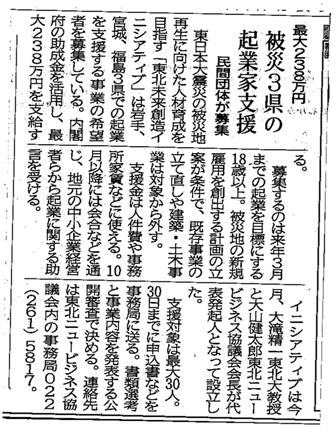 最大238万円
被災3県の
起業家支援
民間団体が募集
東日本大震災の被災地
再生に向けた人材育成を
目指す「東北未来創造イ
ニシアティブ」は岩手、
宮城、福島3県での起業
を支援する事業の希望
者を募集している。内閣
府の助成金を活用し、最
大238万円を支給す
る。
募集するのは来年3月
までの起業を目標にする
18歳以上。被災地の新規
雇用を創出する計画の立
案が条件で、既存事業の
立て直しや建築・土木事
業は対象から外す。
支援金は人件費や事務
所家賃などに使える。10
月以降には会合などを通
じ、地元の中小企業経営
者らから起業に関する助
言を受ける。
イニシアティブは今
月、大滝精一東北大教授
と大山健太郎東北ニュー
ビジネス協議会会長が代
表発起人となって設立し
た。
支援対象は最大30人。
30日までに申込書などを
事務局に送る。書類選考
と事業内容を発表する公
開審査で決める。連絡先
は東北ニュービジネス協
議会内の事務局022
(261)5817。